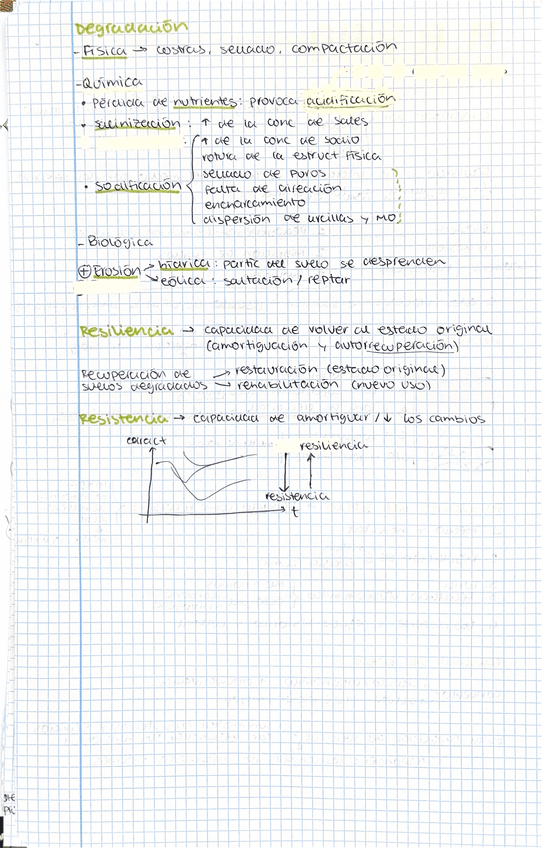 Degradación
- Física → costras, sellado, compactación
- Química
• Pérdida de nutrientes: provoca acidificación
• salinización: ↑ de la conc de sales
• sodificación { ↑ de la conc de sodio
rotura de la estruct física
sellado de poros
falta de aireación
encharcamiento
dispersión de arcillas y MO
- Biológica
⊕ Erosión → hídrica: partíc del suelo se desprenden
→ eólica: saltación / reptar
Resiliencia → capacidad de volver al estado original
(amortiguación y autorrecuperación)
Recuperación de → restauración (estado original)
suelos degradados → rehabilitación (nuevo uso)
Resistencia → capacidad de amortiguar / ↓ los cambios
caract
resiliencia
resistencia
t